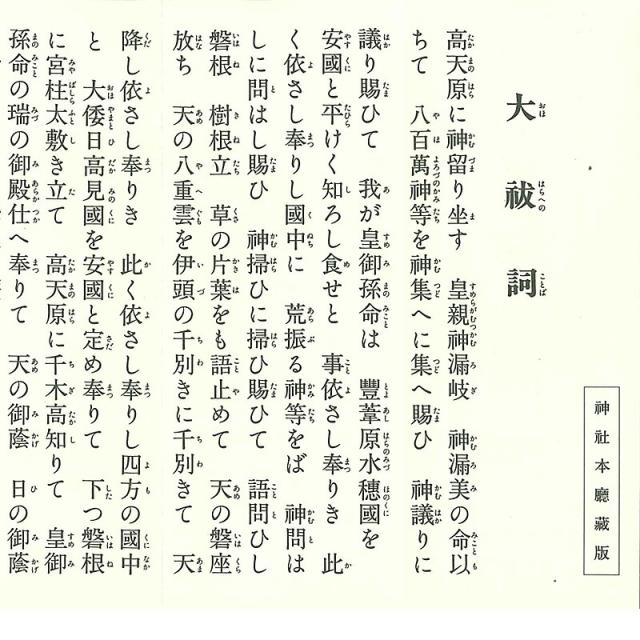 神社本廳藏版
大祓詞
高天原に神留り坐す　皇親神漏岐　神漏美の命以
ちて　八百萬神等を神集へに集へ賜ひ　神議りに
議り賜ひて　我が皇御孫命は　豐葦原水穗國を
安國と平けく知ろし食せと　事依さし奉りき　此
く依さし奉りし國中に　荒振る神等をば　神問は
しに問はし賜ひ　神掃ひに掃ひ賜ひて　語問ひし
磐根　樹根立　草の片葉をも語止めて　天の磐座
放ち　天の八重雲を伊頭の千別きに千別きて　天
降し依さし奉りき　此く依さし奉りし四方の國中
と　大倭日高見國を安國と定め奉りて　下つ磐根
に宮柱太敷き立て　高天原に千木高知りて　皇御
孫命の瑞の御殿仕へ奉りて　天の御蔭　日の御蔭